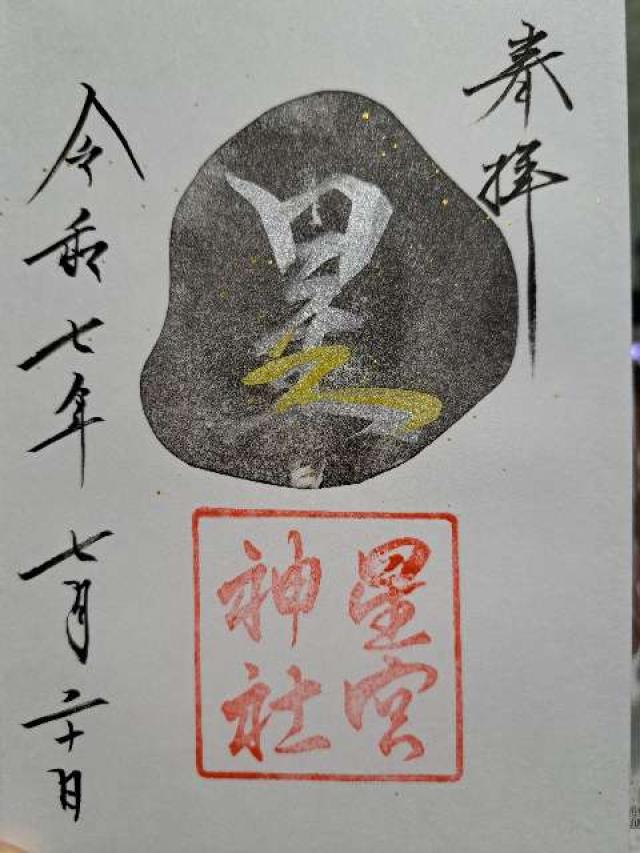 奉拝
星
星宮
神社
令和七年七月二十日